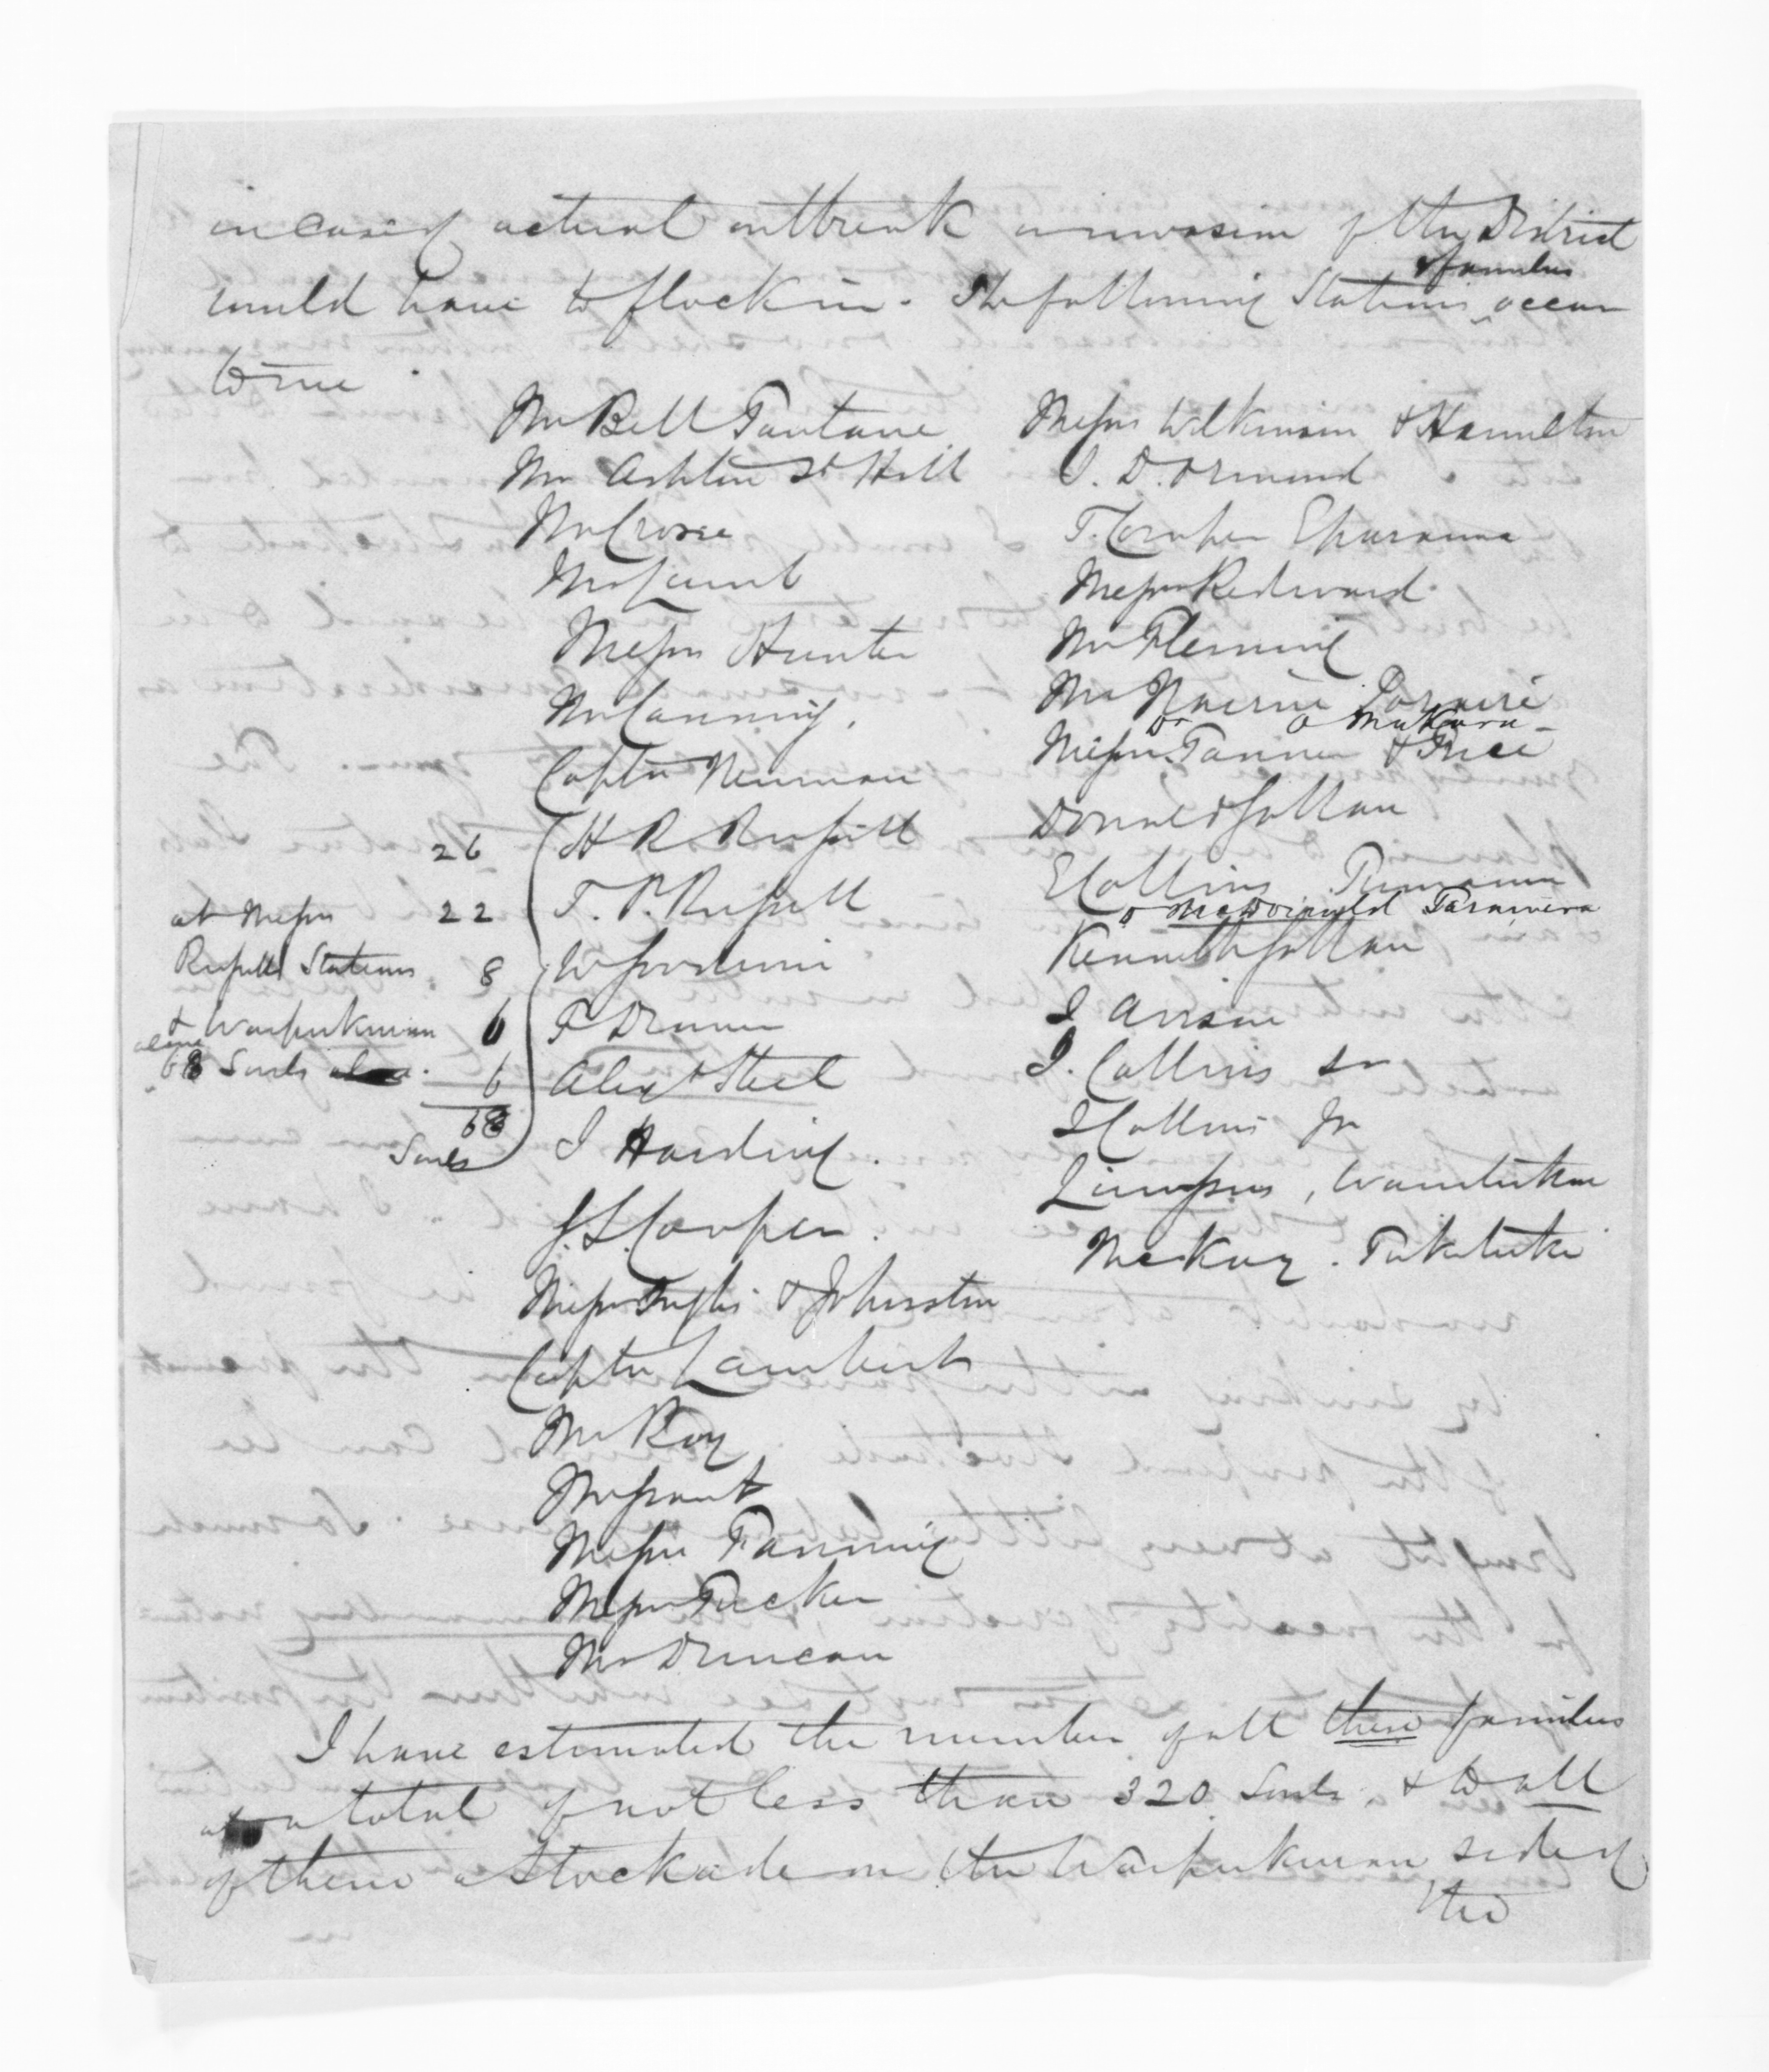 in case of actual outbreak or invasion of the District
would have to flock in. The following Stations & families occur
to me.
Mr Bell Tautane
Mr Ashton St Hill
Mr Crosse
Mr Lamb
Messrs Hunter
Mr Canning.
Captn Newman
26 H R Russell
at Messrs 22 T. P. Russell
Russells Stations 8 W Goodwin
& Waipukurau 6 F Drower
alone 68 Souls 6 Alexr Steel
68
Souls
J Harding.
J. S. Cooper.
Messrs Inglis & Johnston
Captn Lambert
Mr Roy
Mr Grant
Messrs Fanning
Messrs Tucker
Mr Duncan
Messrs Wilkinson & Hamilton
J. D. Ormond
T. Cooper Eparaima
Messrs Redward
Mr Fleming
Mr Nairn
Messrs Tanner & Price
Donald Gollan
E Collins
& McDonald
Kenneth Gollan
J Avison
J. Collins Sr
J Collins Jr
McKay.
I have estimated the number of all these families
at a total of not less than 320 Souls. & to all
of them a Stockade on the Waipukurau side of
the